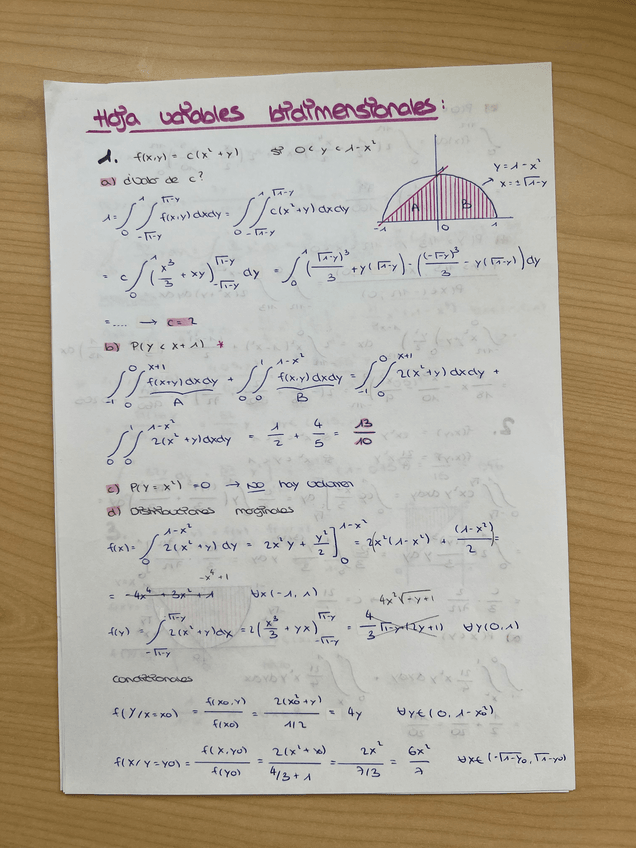 Hoja variables bidimensionales:
1. f(x,y) = c(x² + y) si 0 < y < 1-x²
y = 1-x²
x = ±√1-y
A B
-1 0 1
a) ¿Valor de c?
1 = ∫₀¹ ∫_{-√1-y}^{√1-y} f(x,y) dxdy = ∫₀¹ ∫_{-√1-y}^{√1-y} c(x²+y) dxdy
= c ∫₀¹ (x³/3 + xy)_{-√1-y}^{√1-y} dy = ∫₀¹ ((√1-y)³/3 + y(√1-y) - ((-√1-y)³/3 - y(√1-y)) dy
= .... → c = 2
b) P(Y < X + 1) *
∫_{-1}^{0} ∫₀^{x+1} f(x+y) dxdy + ∫₀¹ ∫₀^{1-x²} f(x,y) dxdy = ∫_{-1}^{0} ∫₀^{x+1} 2(x²+y) dxdy +
A B
∫₀¹ ∫₀^{1-x²} 2(x²+y) dxdy = 1/2 + 4/5 = 13/10
c) P(Y = X²) = 0 → NO hay volumen
d) Distribuciones marginales
f(x) = ∫₀^{1-x²} 2(x²+y) dy = 2x²y + y²/2 ]₀^{1-x²} = 2x²(1-x²) + (1-x²)/2 =
-x⁴+1
= -4x⁴ + 3x² + 1 ∀x(-1,1)
4x²√-y+1
f(y) = ∫_{-√1-y}^{√1-y} 2(x²+y) dx = 2(x³/3 + yx)_{-√1-y}^{√1-y} = 4/3 √1-y + (2y+1) ∀y(0,1)
condicionales
f(Y/X=x0) = f(x0,y)/f(x0) = 2(x0²+y)/1/2 = 4y ∀y∈(0, 1-x0²)
f(X/Y=y0) = f(x,y0)/f(y0) = 2(x²+y0)/4/3+1 = 2x²/7/3 = 6x²/7 ∀x∈(-√1-y0, √1-y0)